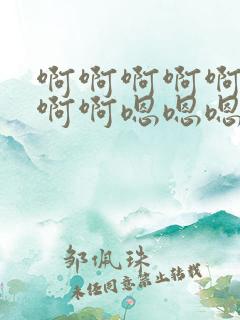 啊啊啊啊啊
啊啊嗯嗯嗯
邹佩珠
未经同意禁止转载